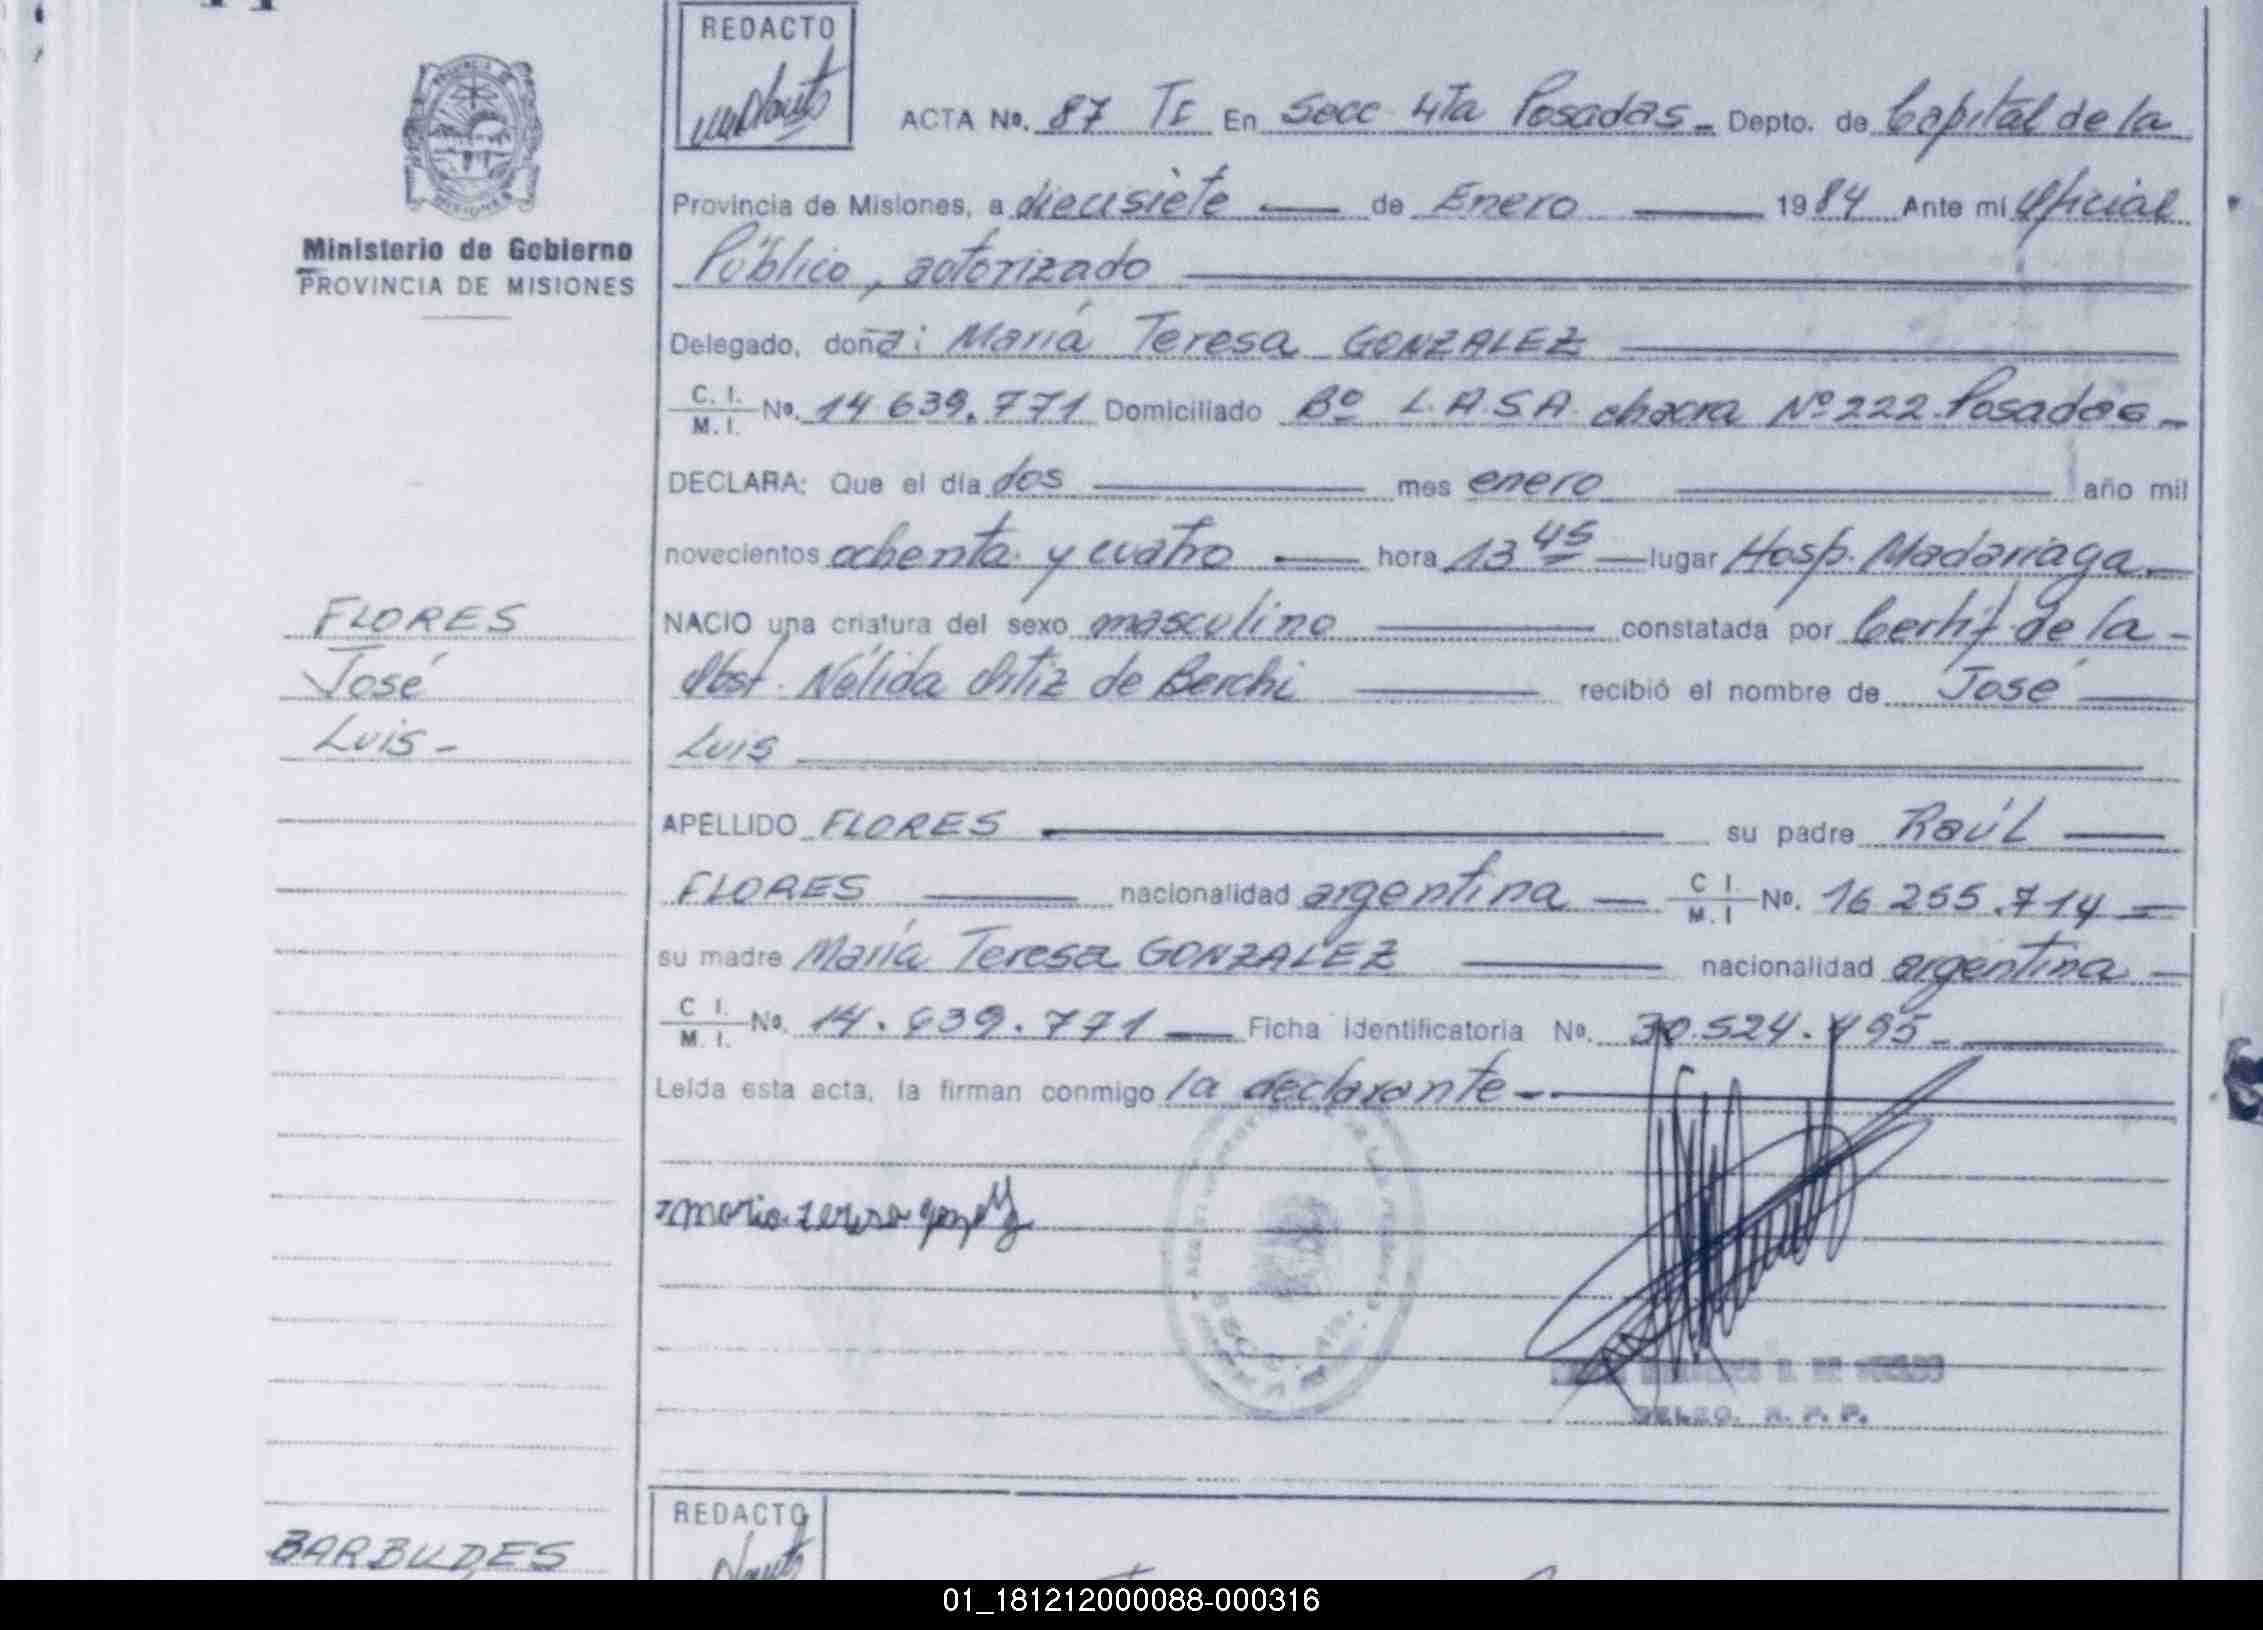 REDACTO
ACTA No. 87 TE En Secc 4Ta Posadas - Depto. de Capital de la
Ministerio de Gobierno
PROVINCIA DE MISIONES
Provincia de Misiones, a diecisiete — de Enero — 1984 Ante mi Oficial
Público, autorizado
Delegado, doña: María Teresa GONZALEZ
C. I. / M. I. No. 14.639.771 Domiciliado Bº L.A.S.A. chacra Nº 222 Posadas -
DECLARA: Que el día dos — mes enero — año mil
novecientos ochenta y cuatro — hora 13 45 — lugar Hosp. Madariaga -
NACIO una criatura del sexo masculino — constatada por Certif. de la -
Obst. Nélida Ortiz de Berchi — recibió el nombre de José —
Luis
FLORES
José
Luis -
APELLIDO FLORES — su padre Raúl —
FLORES — nacionalidad argentina — C I. / M. I No. 16 255.714 —
su madre María Teresa GONZALEZ — nacionalidad argentina —
C I. / M. I. No. 14.639.771 — Ficha identificatoria No. 30.524.495 -
Leída esta acta, la firman conmigo la declarante -
maria teresa gonzalez
REDACTO
BARBUDES
01_181212000088-000316